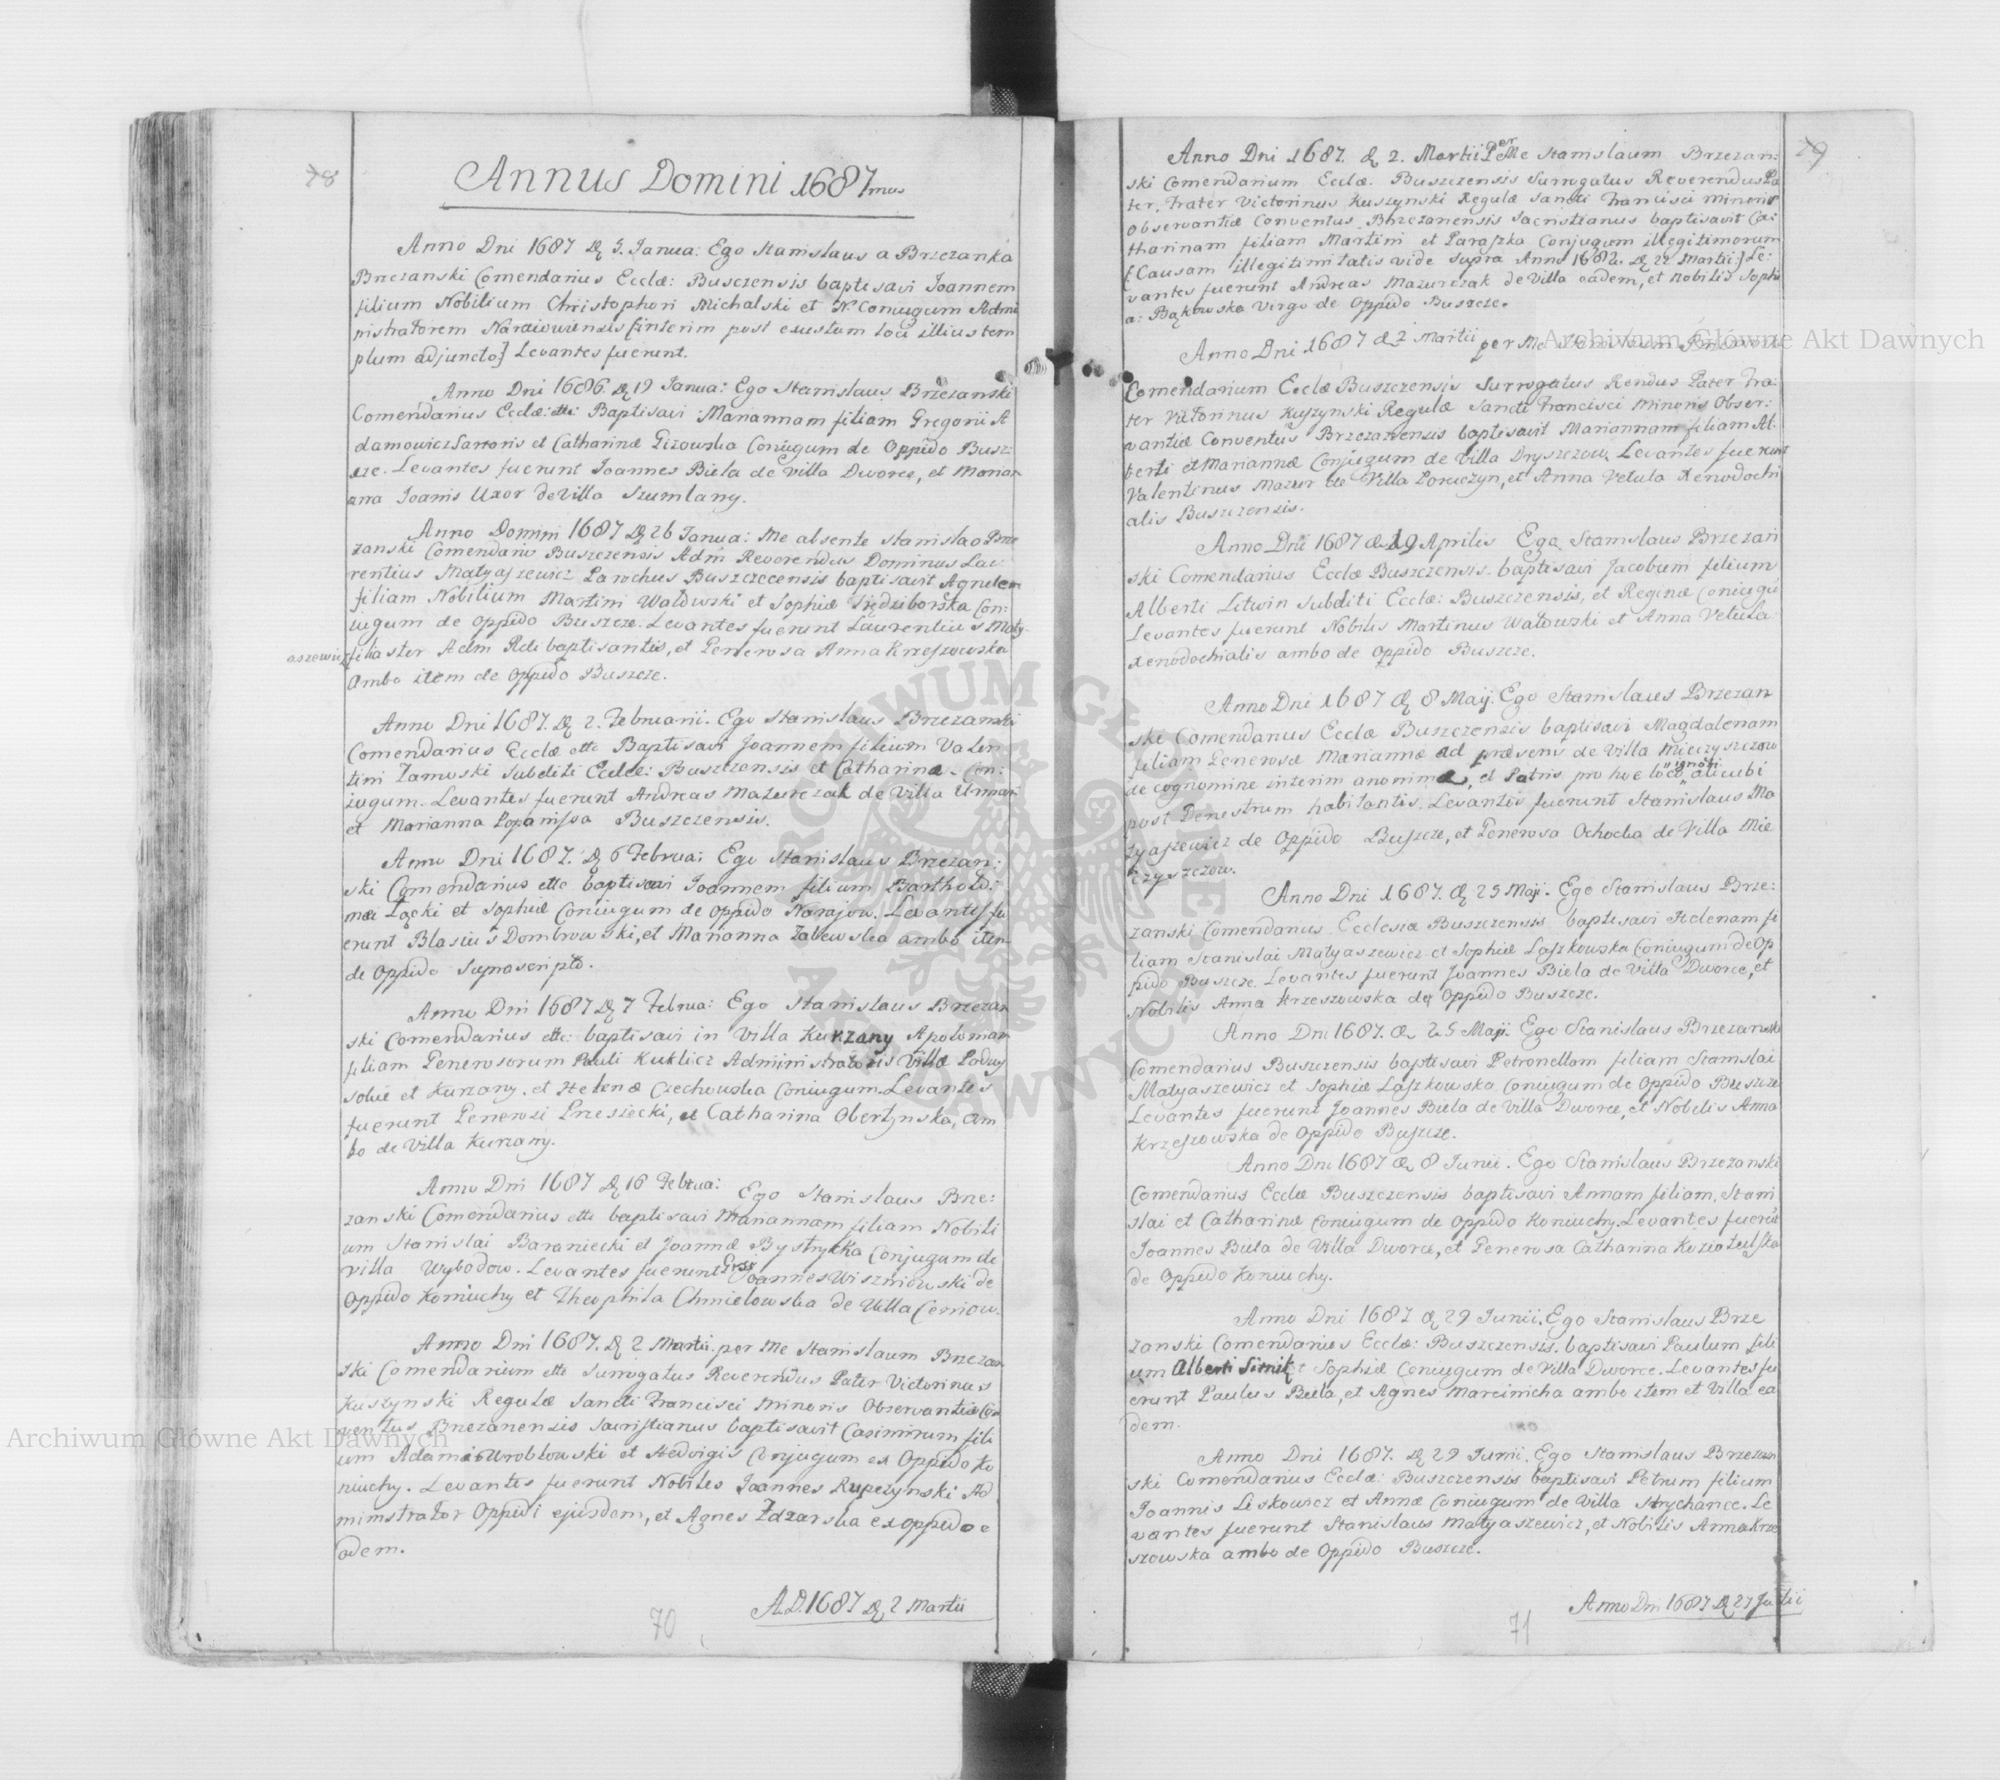 78
Annus Domini 1687mus
Anno Dni 1687 D 5. Janua: Ego Stanislaus a Brzezanka
Brzezanski Comendarius Eccl̄æ: Busczensis baptisavi Joannem
filium Nobilium Christophori Michalski et N. Coniugum Admi
nistratorem Naraiowiensis [interim post exustum loci illius tem
plum adjuncto] Levantes fuerunt.
Anno Dni 1686. D 19 Janua: Ego Stanislaus Brzezanski
Comendarius Eccl̄æ: ettc Baptisavi Mariannam filiam Gregorii A
damowicz Sartoris et Catharinæ Gizowska Coniugum de Oppido Busz:
cze. Levantes fuerunt Joannes Biela de Villa Dworce, et Marian
ana Joanis Uxor de Villa Szumlany.
Anno Domini 1687 D 26 Janua: Me absente Stanislao Brze
zanski Comendario Buszczensis Adm Reverendus Dominus Lau:
rentius Matyaszewicz Parochus Buszczecensis baptisavit Agnetem
filiam Nobilium Martini Watowski et Sophiæ Siedziborska Con:
iugum de Oppido Buszcze. Levantes fuerunt Laurentius Maty:
aszewicz filiaster Adm Rdi baptisantis, et Generosa Anna Krzeszowska
Ambo item de Oppido Buszcze.
Anno Dni 1687. D 2. Februarii. Ego Stanislaus Brzezanski
Comendarius Eccl̄æ ettc Baptisavi Joannem filium Valen
tini Zamoski Subditi Eccl̄æ: Buszczensis et Catharinæ Con:
iugum. Levantes fuerunt Andreas Mazurczak de Villa
et Marianna Popanissa Buszczensis.
Anno Dni 1687. D 6 Februa: Ego Stanislaus Brzezan:
ski Comendarius ettc baptisavi Joannem filium Bartholo:
mæi Łącki et Sophiæ Coniugum de Oppido Narajow. Levantes fu
erunt Blasius Dombrowski, et Marianna Zalewska ambo item
de Oppido Suprascripto.
Anno Dni 1687 D 7 Februa: Ego Stanislaus Brzezan
ski Comendarius ettc: baptisavi in Villa Kurzany Apoloniam
filiam Generosorum Pauli Kuklicz Administratoris Villæ Podwy
sokie et Kurzany. et Helenæ Czechowska Coniugum. Levantes
fuerunt Generosi Przesiecki, et Catharina Obertynska, am
bo de Villa Kurzany.
Anno Dni 1687 D 16 Februa: Ego Stanislaus Brze:
zanski Comendarius ettc baptisavi Mariannam filiam Nobili
um Stanislai Baraniecki et Joannæ Bystrycka Conjugum de
villa Wybodow. Levantes fuerunt Gnsi Joannes Wiszniowski de
Oppido Koniuchy et Theophila Chmielowska de Villa Ceniow.
Anno Dni 1687. D 2 Martii. per Me Stanislaum Brzezan
ski Comendarium ettc Surrogatus Reverendus Pater Victorinus
Kuszynski Regulæ Sancti Francisci Minoris Observantiæ Con
ventus Brzezanensis Sacristianus baptisavit Casimirum fili
um Adami Wroblowski et Hedvigis Conjugum ex Oppido Ko
niuchy. Levantes fuerunt Nobiles Joannes Rupczynski Ad
ministrator Oppidi ejusdem, et Agnes Zdzarska ex Oppido e
odem.
A.D. 1687 D 2 Martii
70
79
Anno Dni 1687. D 2. Martii Per Me Stanislaum Brzezan:
ski Comendarium Eccl̄æ. Buszczensis Surrogatus Reverendus Pa
ter, Frater Victorinus Kuszynski Regulæ Sancti Francisci Minoris
Observantiæ Conventus Brzezanensis Sacristianus baptisavit Ca:
tharinam filiam Martini et Paraszka Conjugum illegitimorum
[Causam illegitimitatis vide supra Anno 1682. D 22 Martii] Le:
vantes fuerunt Andreas Mazurczak de Villa eadem, et Nobilis Sophi
a: Bąkowska Virgo de Oppido Buszcze.
Anno Dni 1687 D 2 Martii per Me Stanislaum Brzezans
Comendarium Eccl̄æ Buszczensis Surrogatus Rendus Pater Fra:
ter Victorinus Kuszynski Regulæ Sancti Francisci Minoris Obser:
vantiæ Conventus Brzezanensis baptisavit Mariannam filiam Al:
berti et Mariannæ Conjugum de Villa Dryszczow. Levantes fuerunt
Valentinus Mazur de Villa Poruczyn, et Anna Vetula Xenodochi
alis Buszczensis.
Anno Dni 1687 D 19 Aprilis Ego Stanislaus Brzezan
ski Comendarius Eccl̄æ Buszczensis. baptisavi Jacobum filium
Alberti Litwin Subditi Eccl̄æ: Buszczensis, et Reginæ Coniugū
Levantes fuerunt Nobilis Martinus Watowski et Anna Vetula
Xenodochialis ambo de Oppido Buszcze.
Anno Dni 1687 D 8 Maij. Ego Stanislaus Brzezan
ski Comendarius Eccl̄æ Buszczensis baptisavi Magdalenam
filiam Generosæ Mariannæ ad præsens de Villa Mieczyszczow
de cognomine interim anonimæ, et Patris pro hoc loco ignoti alicubi
post Denestrum habitantis. Levantes fuerunt Stanislaus Ma
tyaszewicz de Oppido Buszcze, et Generosa Ochocka de Villa Mie
czyszczow.
Anno Dni 1687. D 25 Maji. Ego Stanislaus Brze:
zanski Comendarius. Ecclesiæ Buszczensis baptisavi Helenam fi
liam Stanislai Matyaszewicz et Sophiæ Laszkowska Coniugum de Op
pido Buszcze. Levantes fuerunt Joannes Biela de Villa Dworce, et
Nobilis Anna Krzeszowska de Oppido Buszcze.
Anno Dni 1687. D 25 Maji. Ego Stanislaus Brzezanski
Comendarius Buszczensis baptisavi Petronellam filiam Stanislai
Matyaszewicz et Sophiæ Laszkowska Coniugum de Oppido Buszcze
Levantes fuerunt Joannes Biela de Villa Dworce, et Nobilis Anna
Krzeszowska de Oppido Buszcze.
Anno Dni 1687 D 8 Junii. Ego Stanislaus Brzezanski
Comendarius Eccl̄æ Buszczensis baptisavi Annam filiam, Stani
slai et Catharinæ Coniugum de Oppido Koniuchy. Levantes fuerūt
Joannes Biela de Villa Dworce, et Generosa Catharina Koziotulska
de Oppido Koniuchy.
Anno Dni 1687 D 29 Junii. Ego Stanislaus Brze
zanski Comendarius Eccl̄æ: Buszczensis. baptisavi Paulum fili
um Alberti Simik et Sophiæ Coniugum de Villa Dworce. Levantes fu
erunt Paulus Biela, et Agnes Marcinicha ambo item et Villa ea
dem.
Anno Dni 1687. D 29 Junii. Ego Stanislaus Brzezan
ski Comendarius Eccl̄æ: Buszczensis baptisavi Petrum filium
Joannis Liskowicz et Annæ Coniugum de Villa Strychance. Le
vantes fuerunt Stanislaus Matyaszewicz, et Nobilis Anna Krze
szowska ambo de Oppido Buszcze.
Anno Dni 1687 D 27 Julii
71
Archiwum Główne Akt Dawnych
Archiwum Główne Akt Dawnych
ARCHIWUM GŁÓWNE AKT DAWNYCH